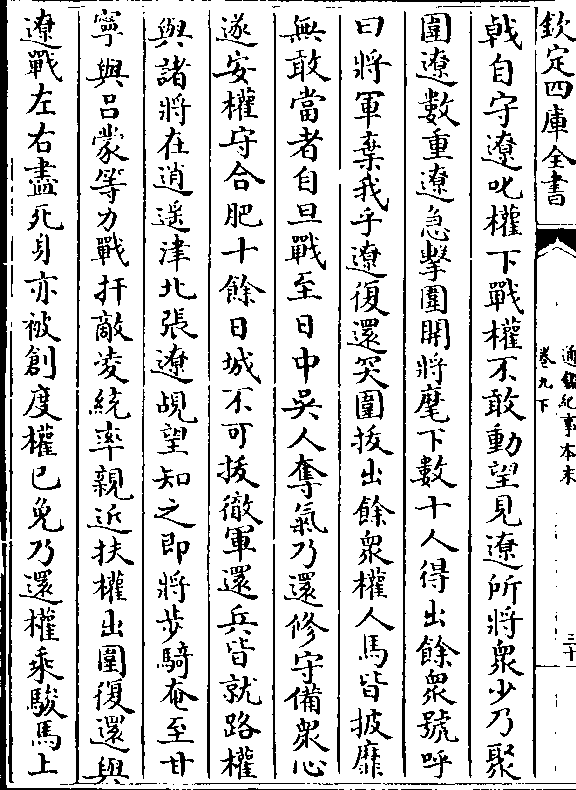 欽定四庫全書
通鑑紀事本末
卷九下
三十
戟自守遼叱權下戰權不敢動望見遼所將衆少乃聚
圍遼數重遼急擊圍開將麾下數十人得出餘衆號呼
曰將軍棄我乎遼復還突圍拔出餘衆權人馬皆披靡
無敢當者自旦戰至日中吳人奪氣乃還修守備衆心
遂安權守合肥十餘日城不可拔徹軍還兵皆就路權
與諸將在逍遥津北張遼覘望知之即將步騎奄至甘
寧與呂蒙等力戰扞敵凌統率親近扶權出圍復還與
遼戰左右盡死身亦被創度權已免乃還權乘駿馬上